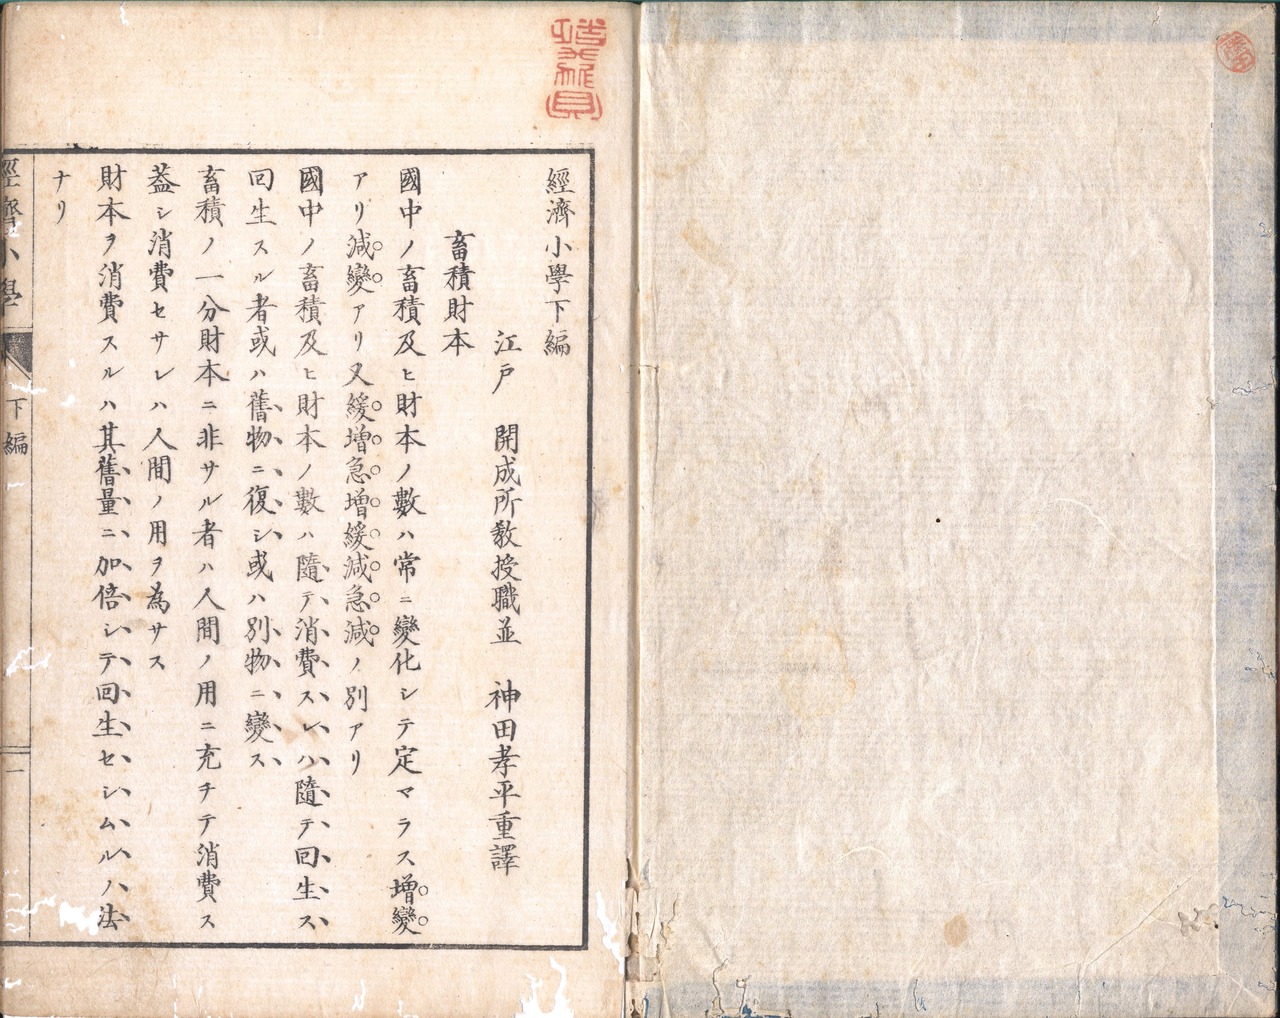 經濟小學下編
江戸 開成所教授職並 神田孝平重譯
畜積財本
國中ノ畜積及ヒ財本ノ數ハ常ニ變化シテ定マラス增變
アリ減變アリ又緩增急增緩減急減ノ別アリ
國中ノ畜積及ヒ財本ノ數ハ隨テ消費スレハ隨テ回生ス
回生スル者或ハ舊物ニ復シ或ハ別物ニ變ス
畜積ノ一分財本ニ非サル者ハ人間ノ用ニ充チテ消費ス
蓋シ消費セサレハ人間ノ用ヲ為サス
財本ヲ消費スルハ其舊量ニ加倍シテ回生セシムルノ法
ナリ
經濟小學
下編
一